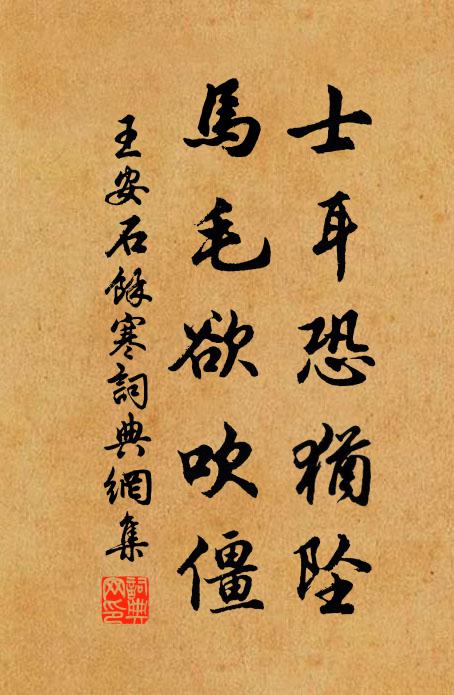 士耳恐猶墜
馬毛欲吹僵
王安石餘寒詞典網集
詞典网印